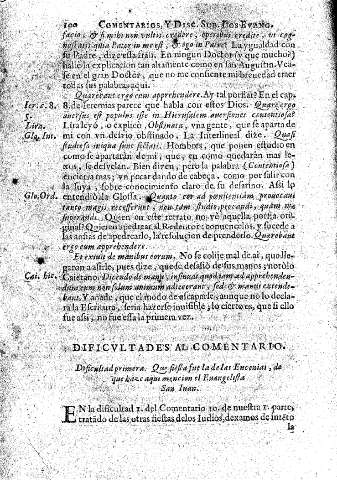 100 COMENTARIOS, Y DISC. SOB. LOS EVANG.
facio, & si mihi non vultis credere, operibus credite, vt cog-
noscatis quia Pater in me est, & ego in Patre? La ygualdad con
su Padre, dize esta frasi. En ningun Doctor (y que mucho)
hallo la explicacion tan altamente como en san Augustin. Vea-
se en el gran Doctor, que no me consiente mi breuedad traer
todas sus palabras aqui.
Quærebant ergo eum apprehendere. Ay tal porfia? En el cap.
Ier. c. 8. 8. de Ieremias parece que habla con estos Dios. Quare ergo
5. auersus est populus iste in Hierusalem auersione contentiosa?
Lira. Lira leyò, o explicò, Obstinata, vna gente, que se aparta de
Glo. Int. mi con vn desvio obstinado. La Interlineal dize. Quasi
studiosi iniqua sunt sectati. Hombres, que ponen estudio en
como se apartaràn de mi, que en como quedaràn mas le-
xos, se desvelan. Bien dizen, pero la palabra (Contentiosa)
encierra mas, va pecar dando de cabeça, como por salir con
la suya, sobre conocimiento claro de su desatino. Assi lo
Glo. Ord. entendiò la Glossa. Quanto eos ad pœnitentiam prouocaui
tanto magis recesserunt, non tam studio peccandi, quàm me
superandi. Quien en este retrato no vè aquella porfia ori-
ginal? Quieren apedrear al Redentor: conuencelos, y sucede a
las ansias de apedrearlo, la resolucion de prenderlo. Quærebant
ergo eum apprehendere.
Et exiuit de manibus eorum. No se colije mal de ai, que lle-
garon a asirle, pues dize, que se desasiò de sus manos y notòlo
Cai. hic. Caietano.
y añade, que el modo de escaparse, aunque no lo decla-
ra la Escritura, seria hazerse inuisible, lo cierto es, que si ello
fue assi, no fue esta la primera vez.
DIFICVLTADES AL COMENTARIO.
Dificultad primera. Que fiesta fue la de las Encenias, de
que haze aqui mencion el Euangelista
San Iuan.
EN la dificultad 1. del Comentario 10. de nuestra 1. parte,
tratádo de las otras fiestas delos Iudios, dexamos de inteto
la